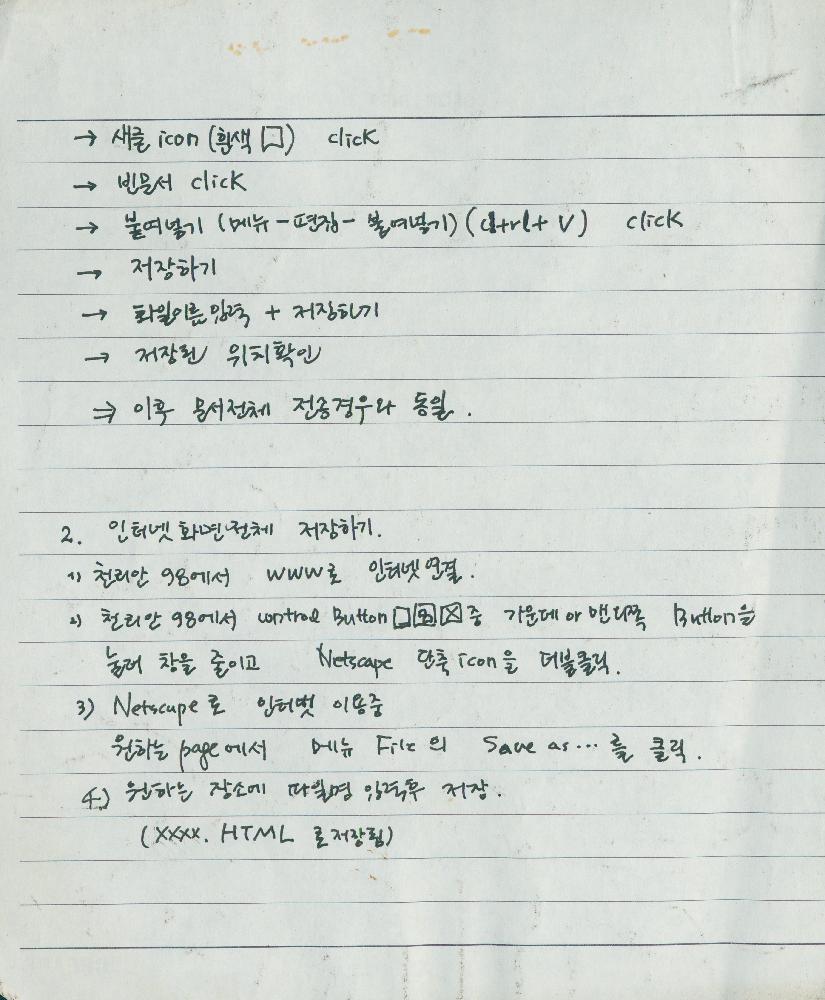 → 새글 icon (흰색 □) click
→ 빈문서 click
→ 붙여넣기 (메뉴 - 편집 - 붙여넣기) (ctrl + V) click
→ 저장하기
→ 화일이름 입력 + 저장하기
→ 저장된 위치확인
⇒ 이후 문서전체 전송경우와 동일.
2. 인터넷 화면전체 저장하기.
1) 천리안 98에서 WWW로 인터넷 연결.
2) 천리안 98에서 control Button 중 가운데 or 맨 Button을
눌러 창을 줄이고 Netscape 단축 icon을 더블클릭.
3) Netscape로 인터넷 이용중
원하는 page에서 메뉴 File의 Save as... 를 클릭.
4) 원하는 장소에 파일명 입력후 저장.
(XXXX. HTML 로 저장됨)